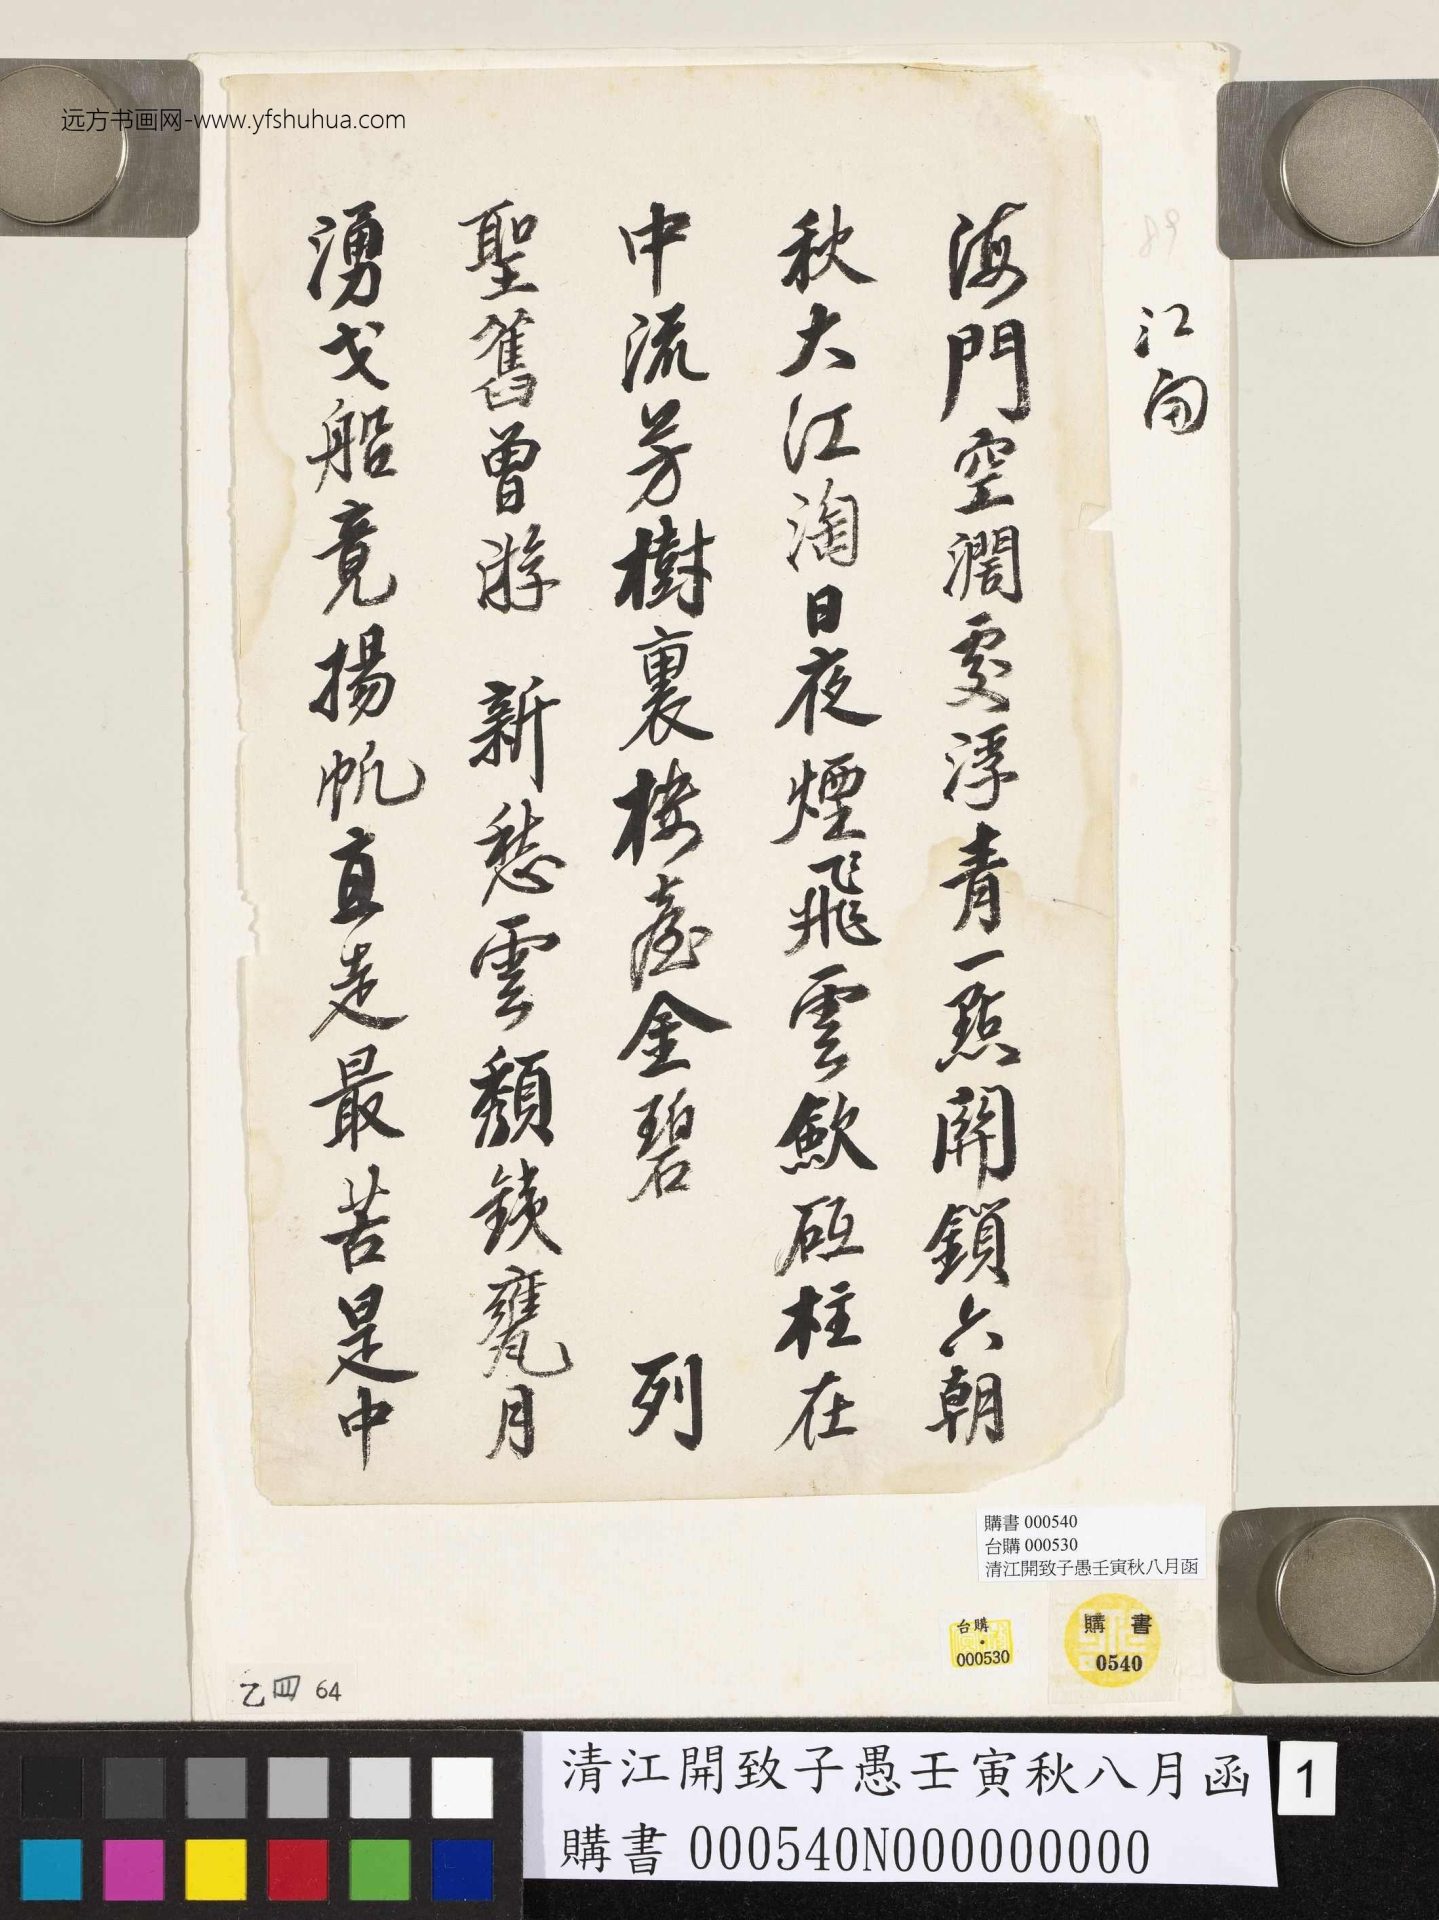 远方书画网-www.yfshuhua.com
海門空濶處浮青一點開鎖六朝
秋大江淘日夜煙飛雲歛砥柱在
中流芳樹裏樓臺金碧 列
聖舊曾游 新愁雲頹鐵甕月
湧戈船竟揚帆直走最苦是中
購書 000540
台購 000530
清江開致子愚壬寅秋八月函
台購
000530
購書
0540
乙四 64
清江開致子愚壬寅秋八月函
購書 000540N000000000
1